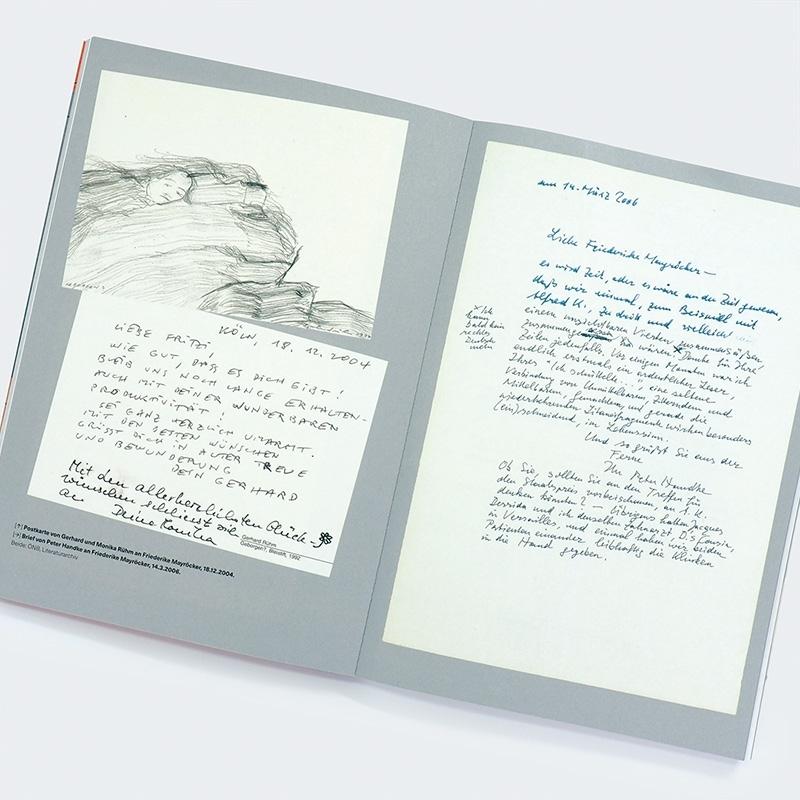 KÖLN, 18.12.2004
LIEBE FRITZI,
WIE GUT, DASS ES DICH GIBT!
BLEIB UNS NOCH LANGE ERHALTEN -
AUCH MIT DEINER WUNDERBAREN
PRODUKTIVITÄT!
SEI GANZ HERZLICH UMARMT.
MIT DEN BESTEN WÜNSCHEN
GRÜSST DICH IN ALTER TREUE
UND BEWUNDERUNG
DEIN GERHARD
Mit den allerherzlichsten Glück-
wünschen schliesst sich
an
Deine Monika
Gerhard Rühm
Geborgen?, Bleistift, 1992
[↑] Postkarte von Gerhard und Monika Rühm an Friederike Mayröcker, 18.12.2004.
[→] Brief von Peter Handke an Friederike Mayröcker, 14.3.2006.
Beide: ÖNB, Literaturarchiv
am 14. März 2006
Liebe Friederike Mayröcker –
es wird Zeit, oder es wäre an der Zeit gewesen,
daß wir einmal, zum Beispiel mit
Alfred K., zu dritt und vielleich
einem unsichtbaren Vierten zusammensäßen
zusammen
Zeiten jedenfalls. Vor einigen Monaten war ich
endlich erstmals ein ordentlicher Leser,
Ihres "Ich schüttelte...", eine seltene
Verbindung von Unmittelbarem, Zitterndem und
Mittelbarem, Gemachtem, und gerade die
wiederkehrenden Zitaneifragmente wirken besonders
(ein)schneidend, im Lebenssinn.
Und so grüßt Sie aus der
Ferne
Ihr Peter Handke
x Ich
kann
bald kein
rechtes
Deutsch
mehr
Ob Sie, sollten Sie an den Treffen für
den Staatspreis vorbeikommen, an A. K.
denken könnten? – Übrigens haben Jacques
Derrida und ich denselben Zahnarzt, D.,
in Versailles, und einmal haben wir beiden
Patienten einander leibhaftig die Klinken
in die Hand gegeben.